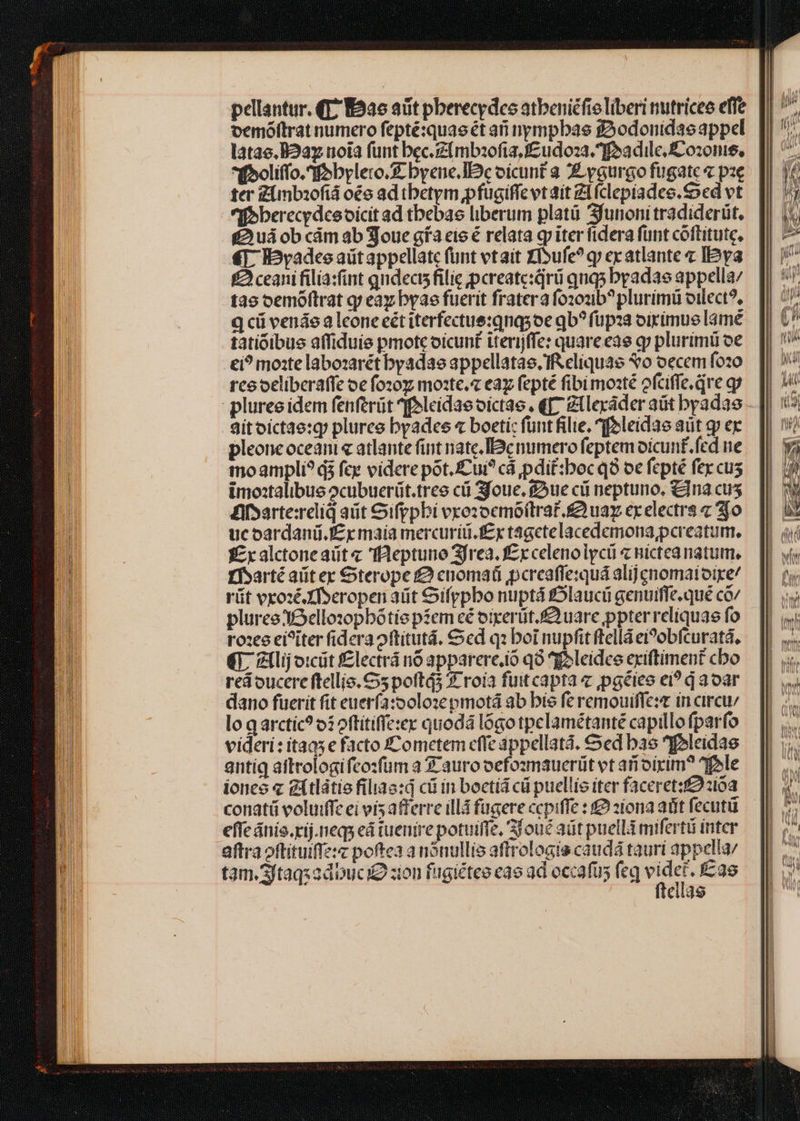 pellantur. ¶ Has aūt pherecydes atheniēsis liberi nutrices esse
demōstrat numero septē: quas ēt añ nymphas Dodonidas appel
latas. Haꝝ noīa sunt hec. Ambrosia, Eudora, Phadile, Coronis,
Poliſſo, Phyleto, Thyene. Hec dicunť a Lygurgo fugate ⁊ pre
ter Ambrosiā oēs ad thetym ꝓfugisse vt ait Asclepiades. Sed vt
Pherecydes dicit ad thebas liberum platū Junoni tradiderūt.
Quā ob cām ab Joue gr̄a eis ē relata ꝙ iter sidera sunt cōstitute.
¶ Hyades aūt appellate sunt vt ait Museꝰ ꝙ ex atlante ⁊ Hyga
Oceani filia: sint qndecīꝫ filie ꝓcreate: q̄rū qnqꝫ hyadas appella/
tas demōstrat ꝙ eaꝝ hyas fuerit frater a sororibꝰ plurimū dilectꝰ,
q cū venās a leone eēt iterfectus: qnqꝫ de qbꝰ supra diximus lamē
tatiōibus assiduis pmote dicunť iterijsse: quare eas ꝙ plurimū de
eiꝰ morte laborarēt hyadas appellatas. Reliquas vo decem soro
res deliberasse de soroꝝ morte. ⁊ eaꝝ septē sibi mortē ↄscisse. q̄re ꝙ
plures idem senserūt Pleidas dictas. ¶ Alexāder aūt hyadas
ait dictas: ꝙ plures hyades ⁊ boetie sunt filie. Pleidas aūt ꝙ ex
pleone oceani ⁊ atlante sint nate. Hec numero septem dicunť. sed ne
mo ampliꝰ qꝫ sex videre pōt. Cuiꝰ cā ꝓdiť: hoc qð de septē sex cuꝫ
imortalibus ↄcubuerūt. tres cū Joue. Due cū neptuno. Una cuꝫ
Marte: reliq̄ aūt Sisyphi vxor demōstrať. Quaꝝ ex electra ⁊ Jo
ue dardanū. Ex maia mercuriū. Ex tagete lacedemona ꝓcreatum.
Ex alctone aūt ⁊ Neptuno Jrea. Ex celeno lycū ⁊ nictea natum.
Martē aūt ex Sterope Oenomaū ꝓcreasse: quā alij enomai dixe/
rūt vxorē. Meropen aūt Sisypho nuptā Glaucū genuisse. quē cō/
plures Bellorophōtis pr̄em eē dixerūt. Quare ꝓpter reliquas so
rores eiꝰ iter sidera ↄstitutā. Sed qꝛ hoī nupsit stellā eiꝰ obscuratā.
¶ Alij dicūt Electrā nō apparere. iō qð Pleides existimenť cho
reā ducere stellis. Sꝫ postqꝫ Troia fuit capta ⁊ ꝓgēies eiꝰ q a dar
dano fuerit sit euersa: dolore pmotā ab his se remouisse: ⁊ in circu/
lo q arcticꝰ dr̄ ↄstitisse: ex quodā lōgo tpe lamētantē capillo sparso
videri: itaqꝫ e facto Cometem esse appellatā. Sed has Pleidas
antiq astrologi seorsum a Tauro deformauerūt vt añ diximꝰ Ple
iones ⁊ Atlātis filias: q̄ cū in boetiā cū puellis iter faceret: Orioa
conatū voluisse ei viꝫ afferre illā fugere cepisse: Oriona aūt secutū
esse ānis. xij. neqꝫ eā iuenire potuisse, Jouē aūt puellā misertū inter
astra ↄstituisse: ⁊ postea a nōnullis astrologis caudā tauri appella/
tam. Jtaqꝫ adhuc Orion fugiētes eas ad occasuꝫ seq videť. Eas
stellas